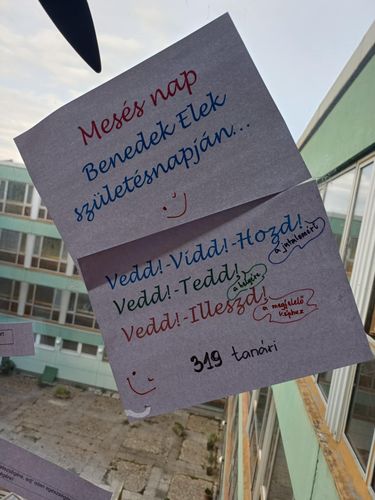 Mesés nap
Benedek Elek
születésnapján...
Vedd!-Vidd!-Hozd!
a jutalomért
Vedd!-Tedd!
a helyére
Vedd!-Illeszd!
a megfelelő
képhez
319 tanári